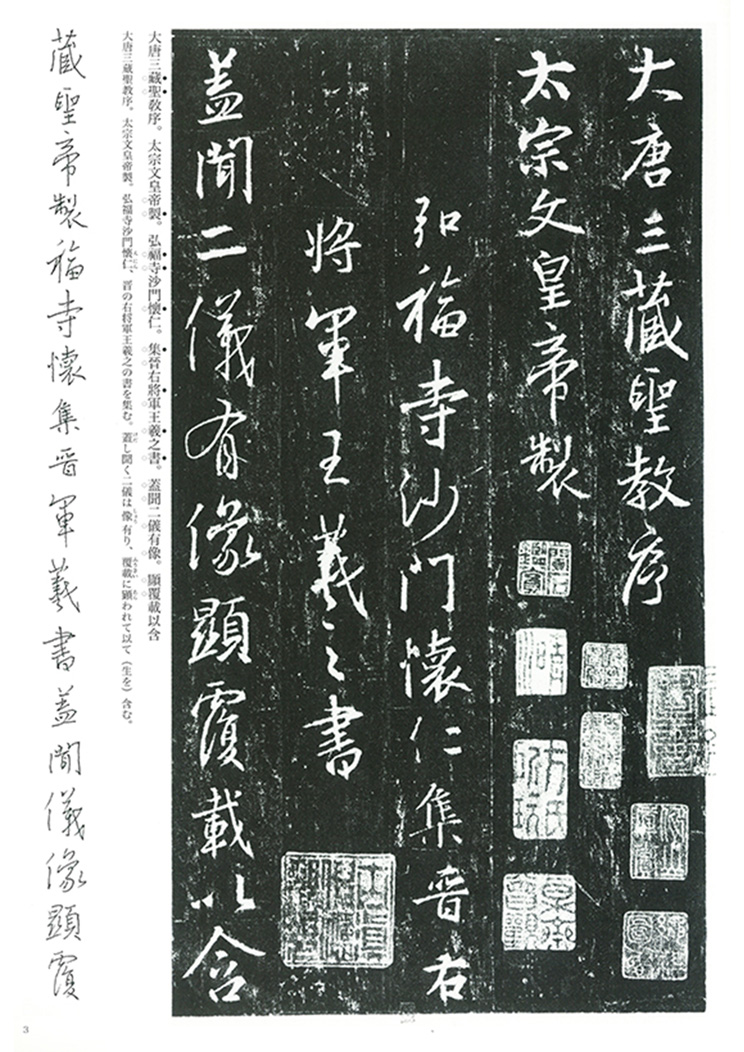 大唐三藏聖教序
太宗文皇帝製
弘福寺沙門懷仁集晉右
將軍王羲之書
蓋聞二儀有像顯覆載以含
大唐三藏聖敎序。太宗文皇帝製。弘福寺沙門懷仁。集晉右將軍王羲之書。蓋聞二儀有像。顯覆載以含
大唐三蔵聖教序。太宗文皇帝製。弘福寺沙門懐仁、晋の右将軍王羲之の書を集む。蓋し聞く二儀は像有り、覆載に顕われて以て（生を）含む。
藏聖帝製福寺懷集晉軍羲書蓋聞儀像顯覆
3